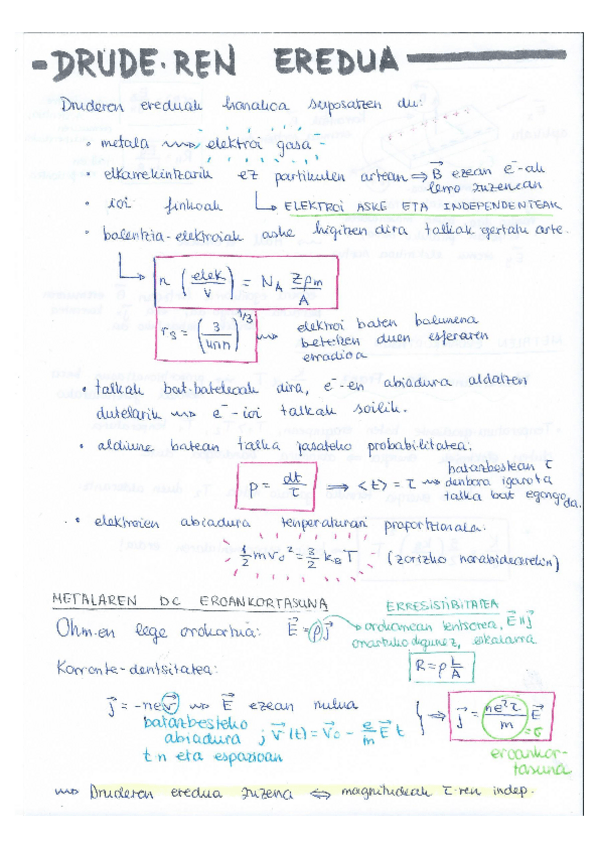 - DRUDE-REN EREDUA
Druderen ereduak honakoa suposatzen du:
• metala ⟿ elektroi gasa
• elkarrekintzarik ez partikulen artean ⇒ B⃗ ezean e⁻-ak lerro zuzenean
• ioi finkoak ↳ ELEKTROI ASKE ETA INDEPENDENTEAK
• balentzia-elektroiak aske higitzen dira talkak gertatu arte.
↳ n (elek/V) = N_A Zρm/A
r_s = (3/4πn)^1/3 ⟿ elektroi baten bolumena
betetzen duen esferaren
erradioa
• talkak bat-batekoak dira, e⁻-en abiadura aldatzen
dutelarik ⟿ e⁻-ioi talkak soilik.
• aldiune batean talka jasateko probabilitatea:
p = dt/τ ⇒ <t> = τ ⟿ batazbestean τ
denbora igarota
talka bat egongo da.
• elektroien abiadura tenperaturari proportzionala:
1/2 mv₀² = 3/2 k_B T (zorizko norabidearekin)
METALAREN DC EROANKORTASUNA
ERRESISTIBITATEA
Ohm-en lege orokortua: E⃗ = ρj⃗ → orokorrean tentsorea, E⃗ ∥ j⃗
onartuko dugunez, eskalarra
R = ρ L/A
Korronte-dentsitatea:
j⃗ = -nev⃗ ⟿ E⃗ ezean nulua
batazbesteko
abiadura ; v⃗(t) = v⃗₀ - e/m E⃗ t
t-n eta espazioan
} ⇒ j⃗ = ne²τ/m E⃗
= σ
eroankor-
tasuna
⟿ Druderen eredua zuzena ⇔ magnitudeak τ-ren indep.